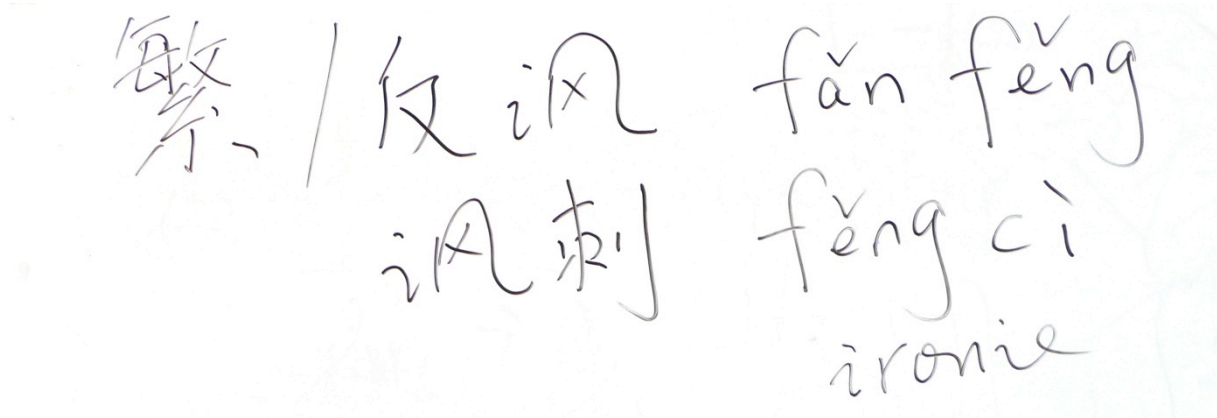 繁/反讽 fǎn fěng
讽刺 fěng cì
ironie